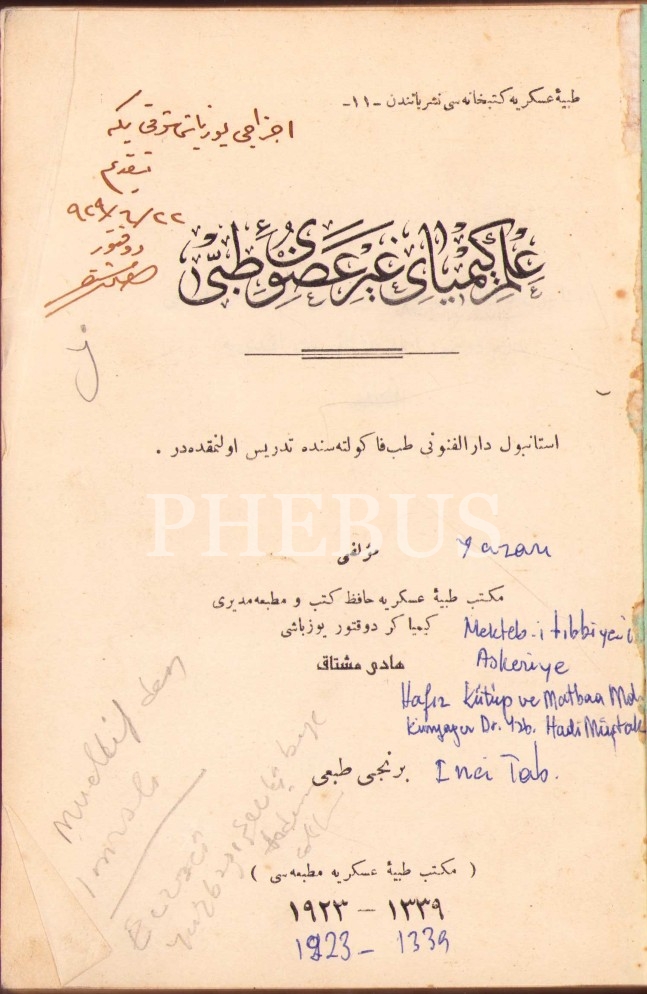 طبیهٔ عسکریه کتبخانه‌سی نشریاتندن -۱۱-
اجزاجی یوزباشی شوقی بکه
تقدیم
۲۲/٦/۹۲۹
دوقتور
علم کیمیای غیر عضوی طبی
استانبول دارالفنونی طب فاکولته‌سنده تدریس اولنمقده‌در .
PHEBUS
مؤلفی Yazan
مکتب طبیهٔ عسکریه حافظ کتب و مطبعه مدیری
کیمیاکر دوقتور یوزباشی Mekteb-i tıbbiye-i
هادی مشتاق Askeriye
Hafız Kütüp ve Matbaa Md
Kimyager Dr. Yzb. Hadi Müştak
برنجی طبعی Inci Tab.
Muellif den
Imzalı
Eczacı
( مکتب طبیهٔ عسکریه مطبعه‌سی )
۱۳۳۹ – ۱۹۲۳
1923 - 1339